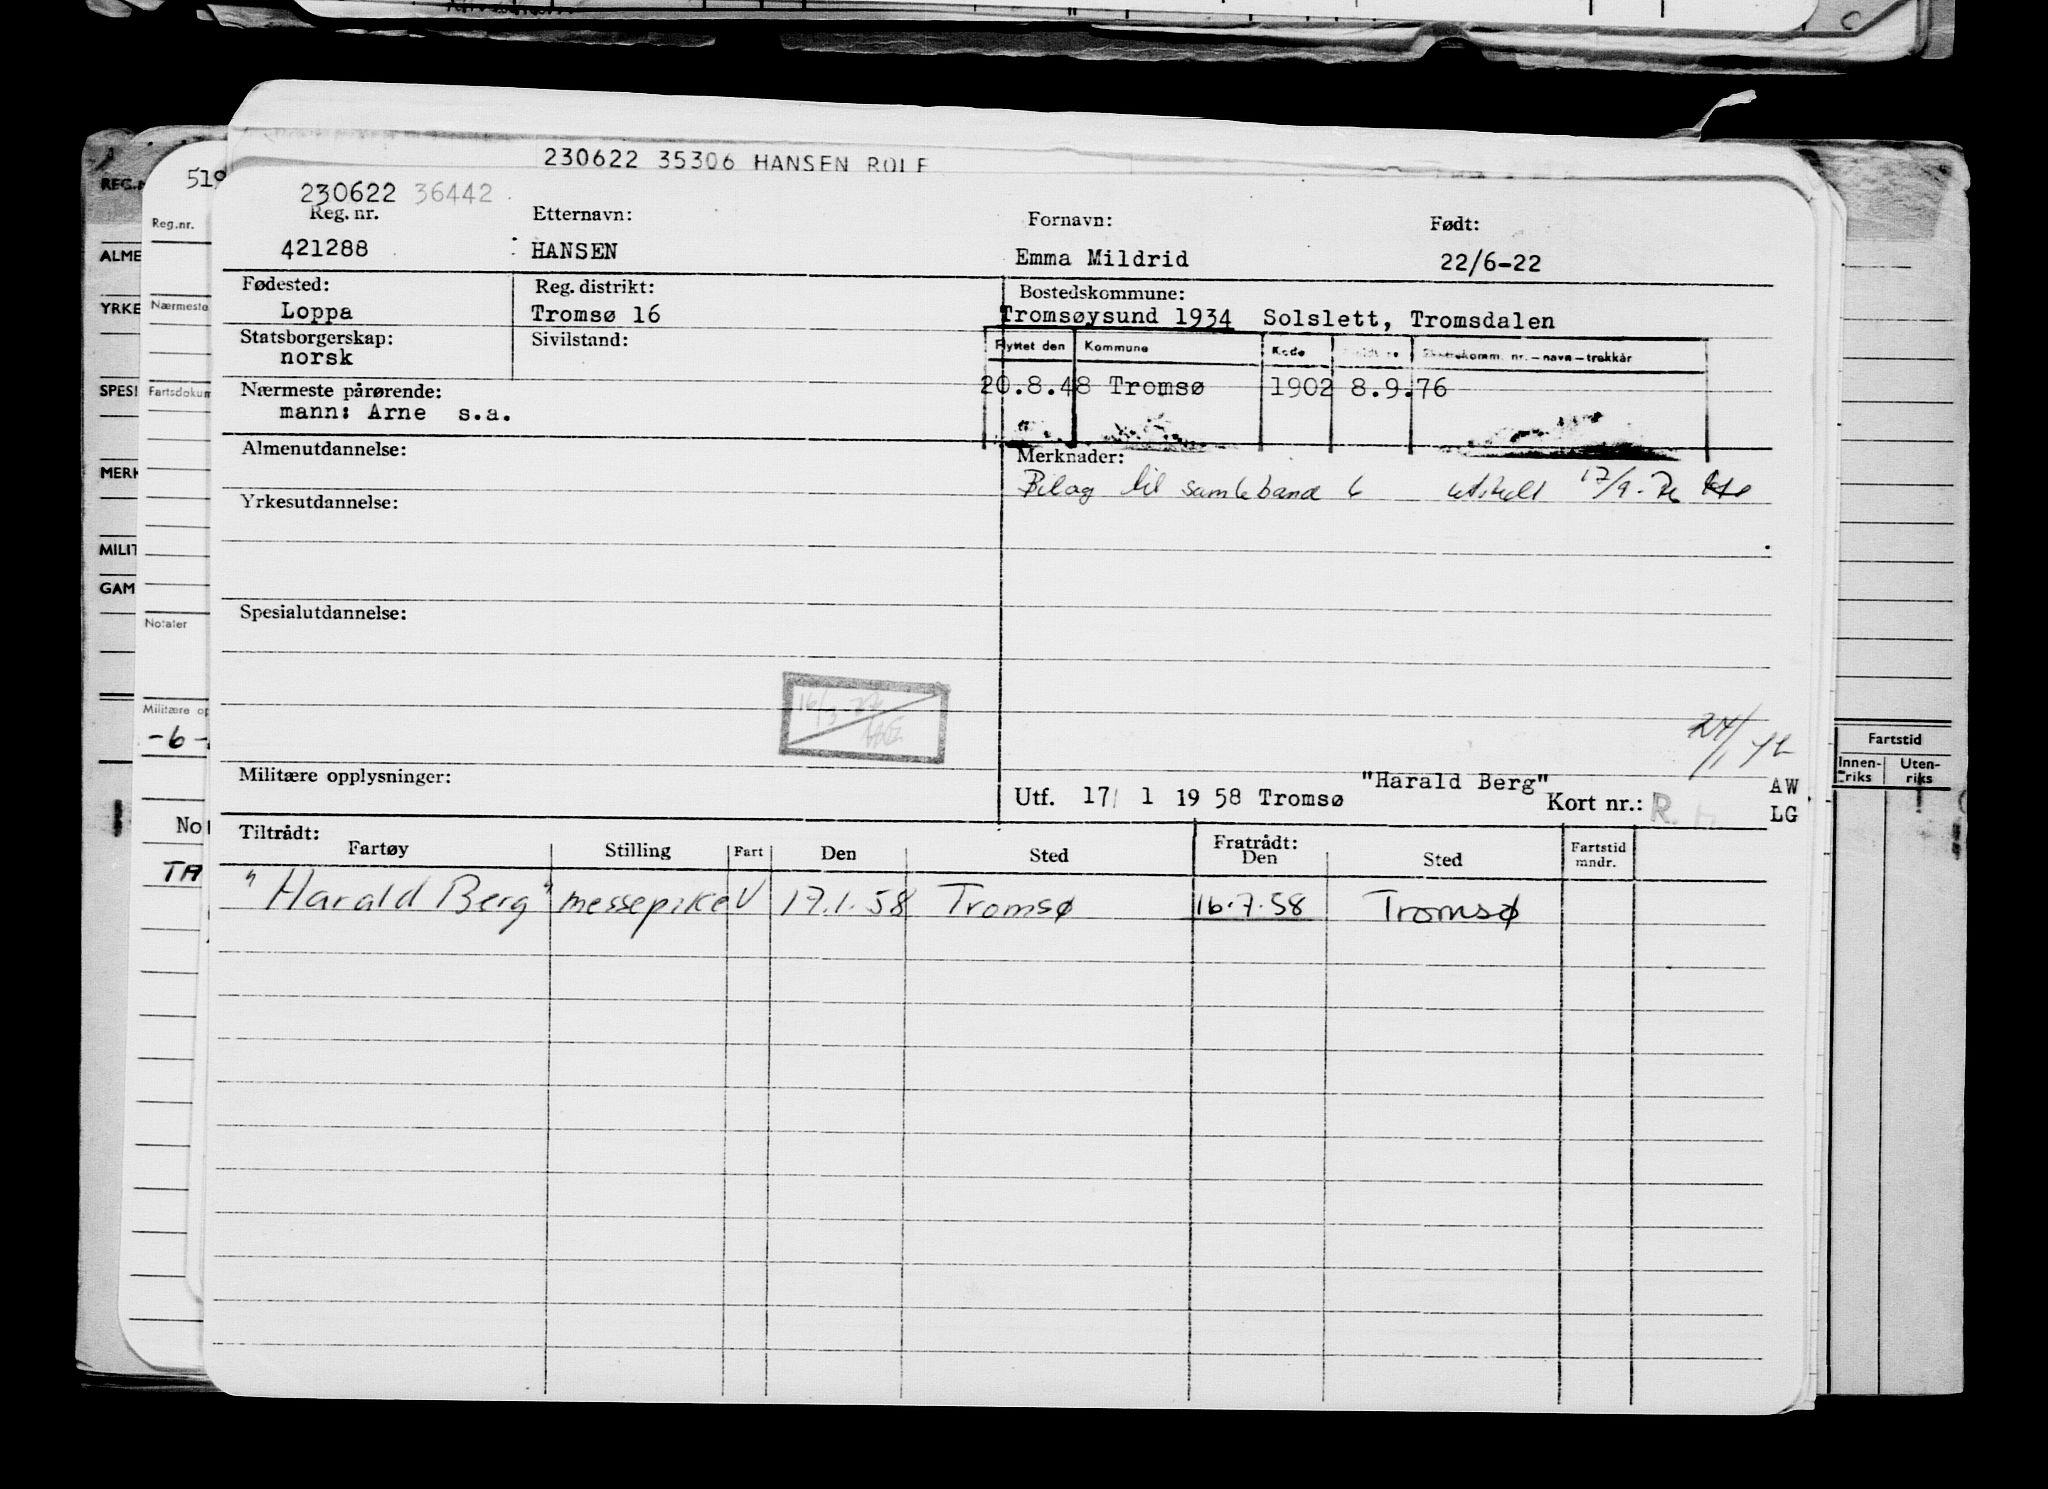 230622 35306 HANSEN ROLF
519
230622 36442
REG.N
Reg.nr.
Reg. nr. Etternavn: Fornavn: Født:
421288 HANSEN Emma Mildrid 22/6-22
ALME
Fødested: Reg. distrikt: Bostedskommune:
Loppa Tromsø 16 Tromsøysund 1934 Solslett, Tromsdalen
YRKE
Nærmeste
Statsborgerskap: Sivilstand:
norsk
Flyttet den Kommune Kode nr.—navn—trekkår
20.8.48 Tromsø 1902 8.9.76
SPESI
Fartsdokum
Nærmeste pårørende:
mann: Arne s.a.
Almenutdannelse: Merknader:
MERK
Bilag til samleband 6 utskilt 17/9-76
Yrkesutdannelse:
MILIT
GAM
Spesialutdannelse:
Notater
Militære op
-6-
16/3
24/1
Fartstid
Innen-riks Uten-riks
Militære opplysninger:
"Harald Berg" AW
Utf. 17/ 1 19 58 Tromsø Kort nr.: R. H LG
Nor
Tiltrådt: Fratrådt:
Fartøy Stilling Fart Den Sted Den Sted Fartstid mndr.
TA
"Harald Berg" messepike V 17.1.58 Tromsø 16.7.58 Tromsø